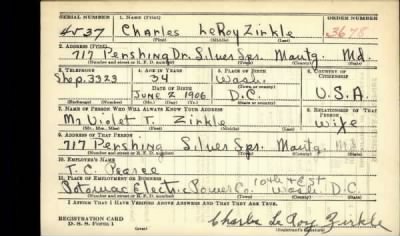 SERIAL NUMBER 1. NAME (Print) ORDER NUMBER
4537 Charles LeRoy Zirkle 3678
(First) (Middle) (Last)
2. ADDRESS (Print)
717 Pershing Dr. Silver Spr. Montg. Md.
(Number and street or R. F. D. number) (Town) (County) (State)
3. TELEPHONE 4. AGE IN YEARS 5. PLACE OF BIRTH 6. COUNTRY OF CITIZENSHIP
Shep. 3323 34 Wash.
DATE OF BIRTH (Town or county)
June 2 1906 D.C. U.S.A.
(Exchange) (Number) (Mo.) (Day) (Yr.) (State or country)
7. NAME OF PERSON WHO WILL ALWAYS KNOW YOUR ADDRESS 8. RELATIONSHIP OF THAT PERSON
Mrs Violet T. Zirkle Wife
(Mr., Mrs., Miss) (First) (Middle) (Last)
9. ADDRESS OF THAT PERSON
717 Pershing Silver Spr. Montg. Md.
(Number and street or R. F. D. number) (Town) (County) (State)
10. EMPLOYER'S NAME
T. C. Pearce
11. PLACE OF EMPLOYMENT OR BUSINESS
Potomac Electric Power Co. 10th & E St Wash. D.C.
(Number and street or R. F. D. number) (Town) (County) (State)
I AFFIRM THAT I HAVE VERIFIED ABOVE ANSWERS AND THAT THEY ARE TRUE.
REGISTRATION CARD
D. S. S. Form 1
Charles Le Roy Zirkle
(Registrant's signature)